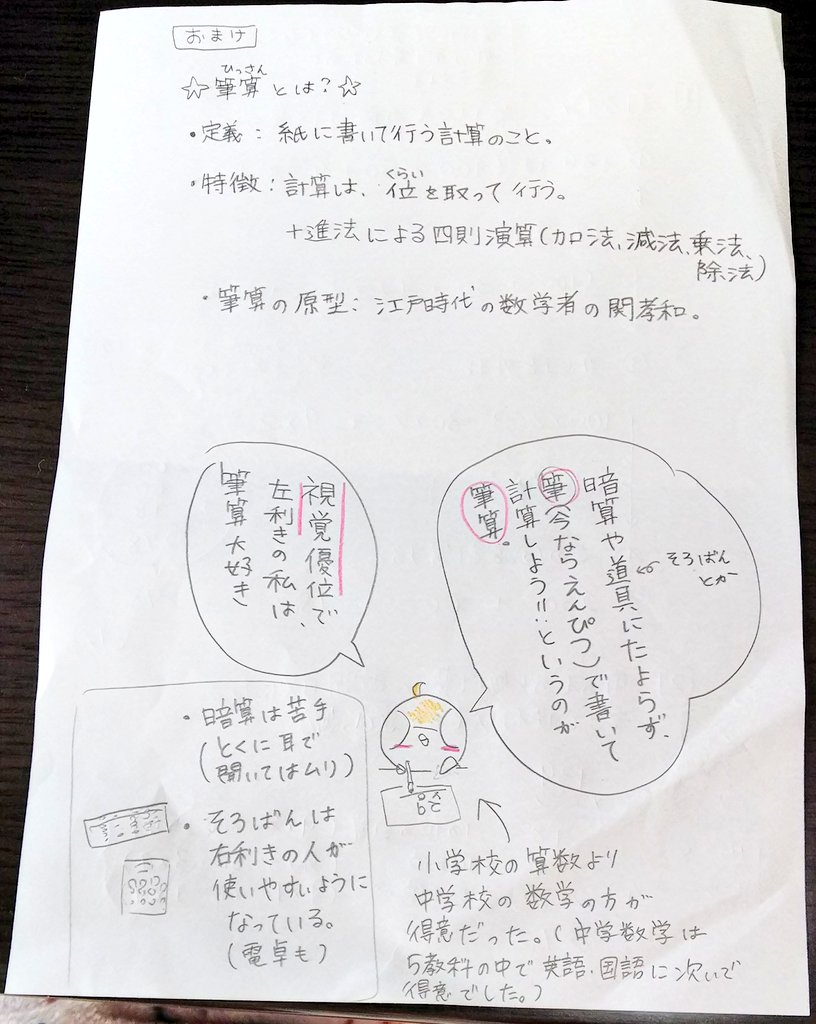 おまけ
ひっさん
☆筆算とは?☆
・定義:紙に書いて行う計算のこと。
くらい
・特徴:計算は、位を取って行う。
十進法による四則演算(加法、減法、乗法、
除法)
・筆算の原型:江戸時代の数学者の関孝和。
暗算や道具にたよらず、
そろばん
とか
筆(今ならえんぴつ)で書いて
計算しよう!!…というのが
筆算。
視覚優位で
左利きの私は、
筆算大好き
・暗算は苦手
(とくに耳で
聞いてはムリ)
・そろばんは
右利きの人が
使いやすいように
なっている。
(電卓も)
小学校の算数より
中学校の数学の方が
得意だった。(中学数学は
5教科の中で英語・国語に次いで
得意でした。)